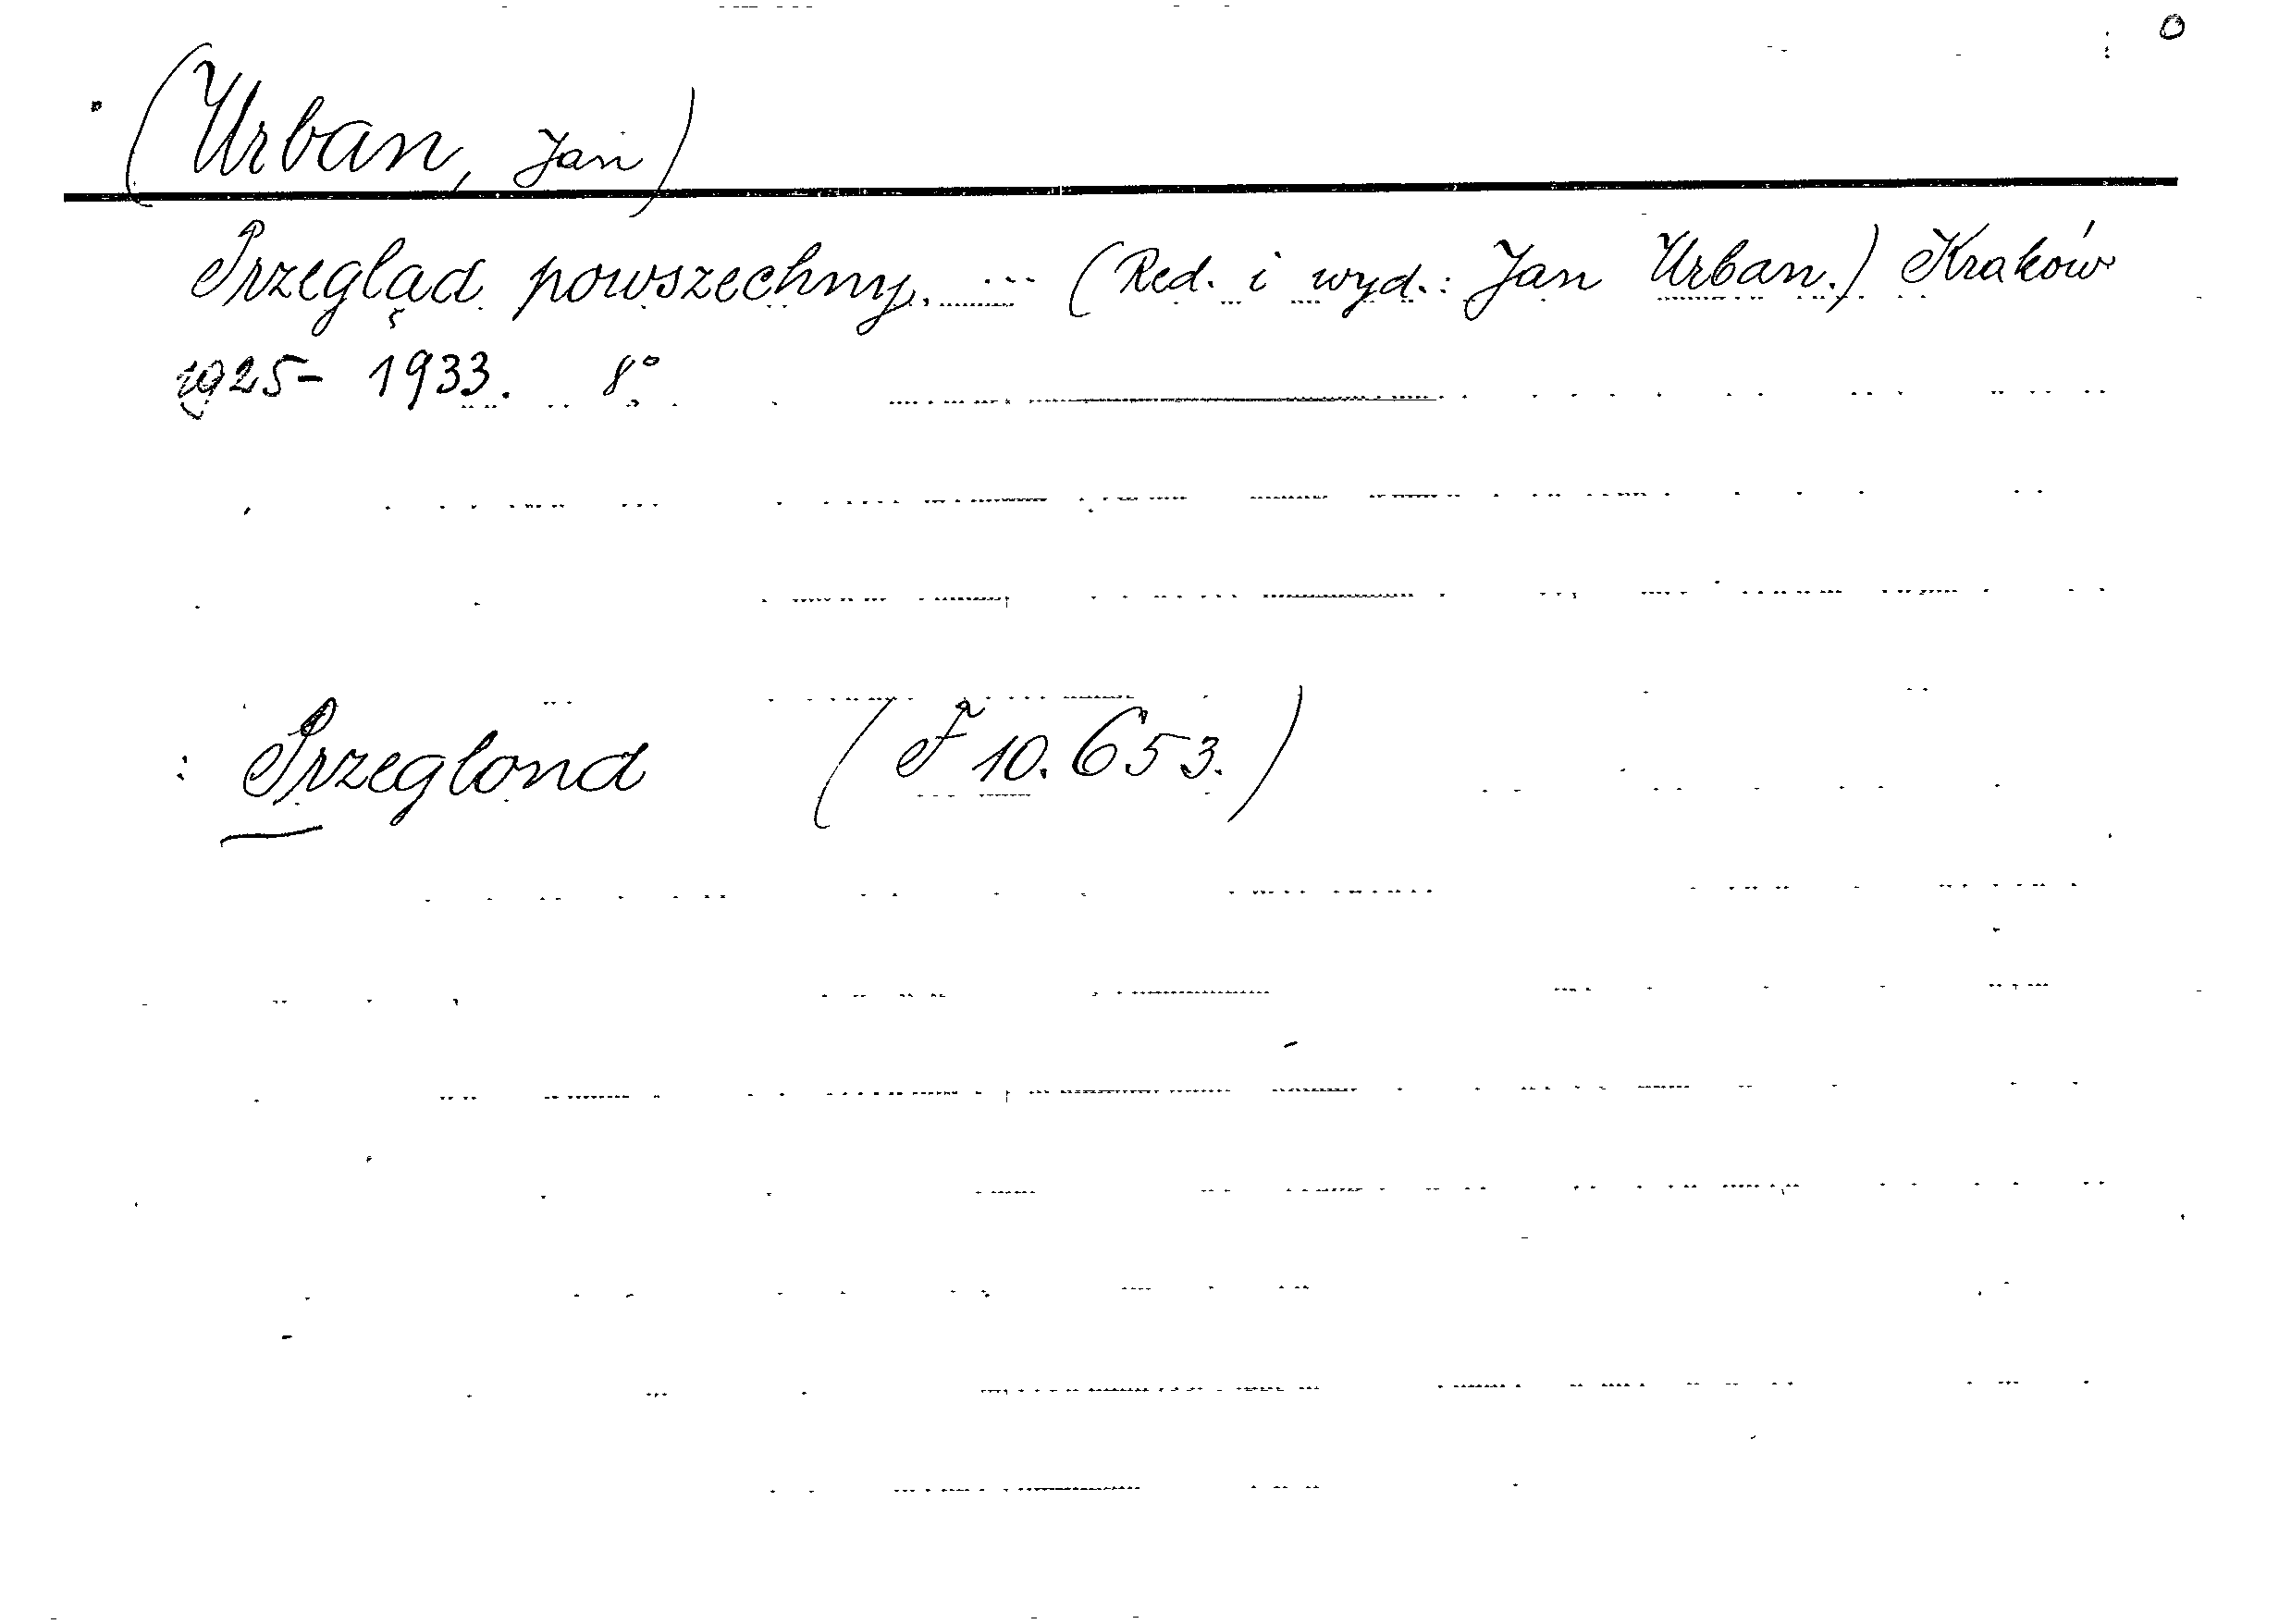 (Urban, Jan)
Przegląd powszechny. ... (Red. i wyd.: Jan Urban.) Kraków
1925- 1933. 8°
: Przeglond (F 10.653.)